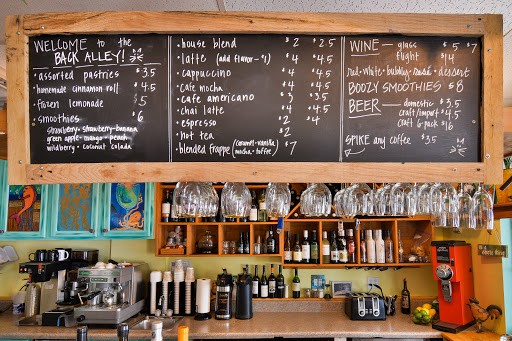 WELCOME to the
BACK ALLEY!
• assorted pastries $3.5
• homemade cinnamon roll $4.5
• frozen lemonade $5
• smoothies $6
strawberry · strawberry-banana
green apple · mango · peach
wildberry · coconut colada
• house blend $2 $2.5
• latte (add flavor - $1) $4 $4.5
• cappuccino $4 $4.5
• cafe mocha $4 $4.5
• cafe americano $3 $3.5
• chai latte $4 $4.5
• espresso $2
• hot tea $2
• blended frappe (caramel · vanilla mocha · toffee) $7
WINE - glass $5 $7
flight $14
red · white · bubbly · rosé · dessert
BOOZY SMOOTHIES $8
BEER - domestic $3.5
craft/import $4.5
craft 6-pack $16
SPIKE any coffee $3.5